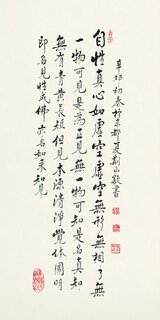 自性真心如虚空虚空無形無相了無
一物可見是爲正見無一物可知是名真知
無有青黄長短但見本源清淨覺体圆明
即名見性成佛亦名如来知見
辛卯初春於京都夏荆山敬書